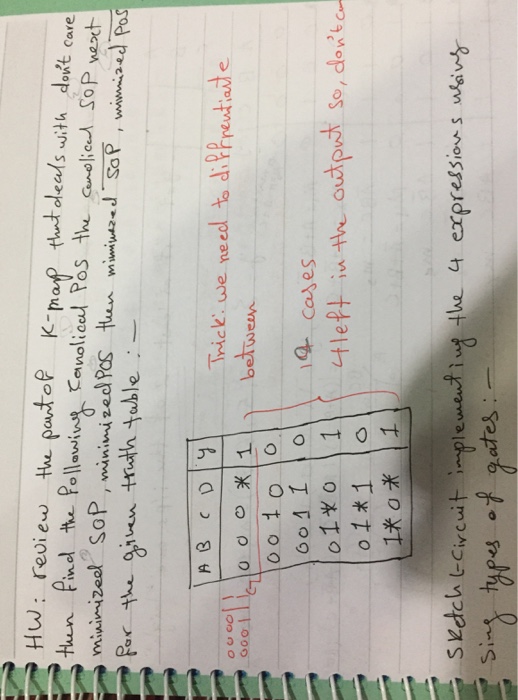 HW: review the part of K-map that deals with don't care
then find the following canolical POS the canolical SOP next
minimized SOP, minimized POS then minimized SOP, minimized POS
for the given truth table: -
Trick: we need to diffrentiate
between
0000 1
0001 1
A B C D y
0 0 0 * 1
0 0 1 0 0
0 0 1 1 0
0 1 * 0 1
0 1 * 1 0
1 * 0 * 1
12 cases
4 left in the output so, don't
Sketch L-Circuit implementing the 4 expressions using
Sing types of gates: -